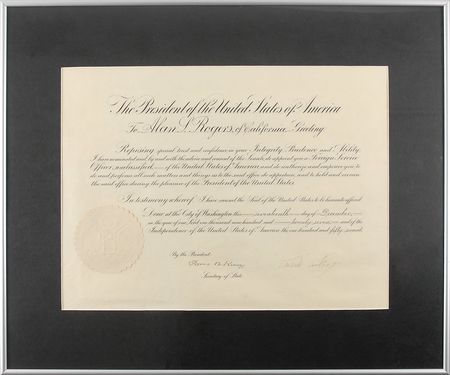 The President of the United States of America
To Alan S. Rogers, of California Greeting:
Reposing special trust and confidence in your Integrity, Prudence and Ability,
I have nominated and by and with the advice and consent of the Senate, do appoint you a Foreign Service
Officer, unclassified of the United States of America and do authorize and empower you to
do and perform all such matters and things as to the said office do appertain, and to hold and exercise
the said office during the pleasure of the President of the United States.
In testimony whereof, I have caused the Seal of the United States to be hereunto affixed.
Done at the City of Washington this seventeenth day of December
in the year of our Lord one thousand nine hundred and twenty-seven and of the
Independence of the United States of America the one hundred and fifty-second.
By the President:
Secretary of State.